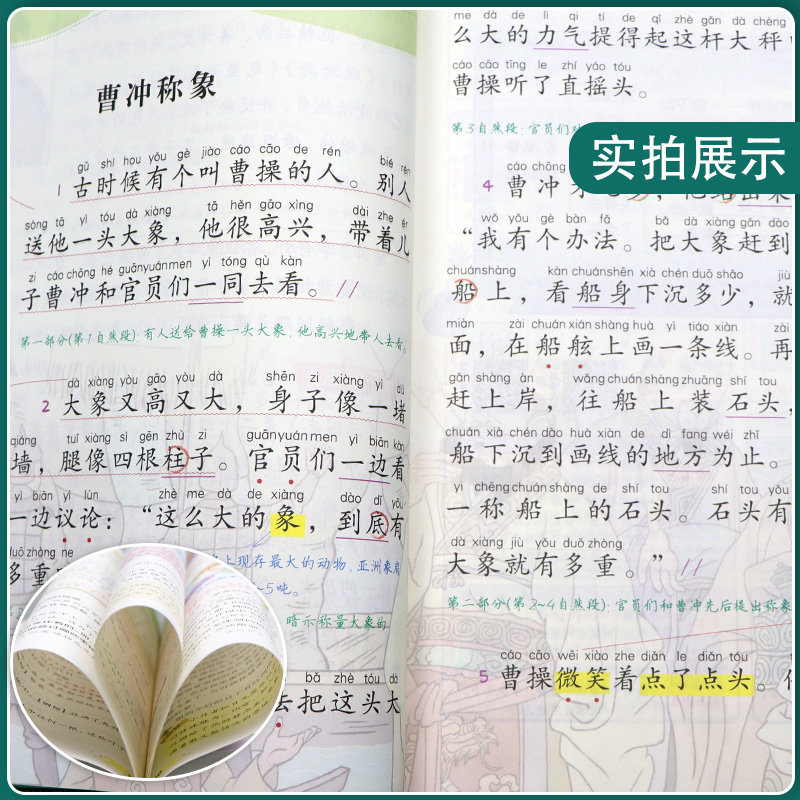 曹冲称象
gǔ shí hou yǒu gè jiào cáo cāo de rén bié rén
1 古时候有个叫曹操的人。别人
sòng tā yì tóu dà xiàng tā hěn gāo xìng dài zhe ér
送他一头大象，他很高兴，带着儿
zi cáo chōng hé guān yuán men yì tóng qù kàn
子曹冲和官员们一同去看。//
第一部分(第1自然段)：有人送给曹操一头大象，他高兴地带人去看。
dà xiàng yòu gāo yòu dà shēn zi xiàng yì dǔ
2 大象又高又大，身子像一堵
qiáng tuǐ xiàng sì gēn zhù zi guān yuán men yì biān kàn
墙，腿像四根柱子。官员们一边看
yì biān yì lùn zhè me dà de xiàng dào dǐ yǒu
一边议论：“这么大的象，到底有
duō zhòng ne
多重
上现存最大的动物，亚洲象肩
~5吨。
暗示称量大象的
bǎ zhè tóu dà
去把这头大
me dà de lì qi tí de qǐ zhè gǎn dà chèng
么大的力气提得起这杆大秤
cáo cāo tīng le zhí yáo tóu
曹操听了直摇头。
第3自然段：官员们
实拍展示
cáo chōng
4 曹冲
wǒ yǒu gè bàn fǎ bǎ dà xiàng gǎn dào
“我有个办法。把大象赶到
chuán shàng kàn chuán shēn xià chén duō shǎo jiù
船上，看船身下沉多少，就
miàn zài chuán xián shàng huà yì tiáo xiàn zài
面，在船舷上画一条线。再
gǎn shàng àn wǎng chuán shàng zhuāng shí tou
赶上岸，往船上装石头，
chuán xià chén dào huà xiàn de dì fang wéi zhǐ
船下沉到画线的地方为止。
yì chēng chuán shàng de shí tou shí tou yǒu
一称船上的石头。石头有
dà xiàng jiù yǒu duō zhòng
大象就有多重。”//
第二部分(第2~4自然段)：官员们和曹冲先后提出称象
cáo cāo wēi xiào zhe diǎn le diǎn tóu
5 曹操微笑着点了点头。